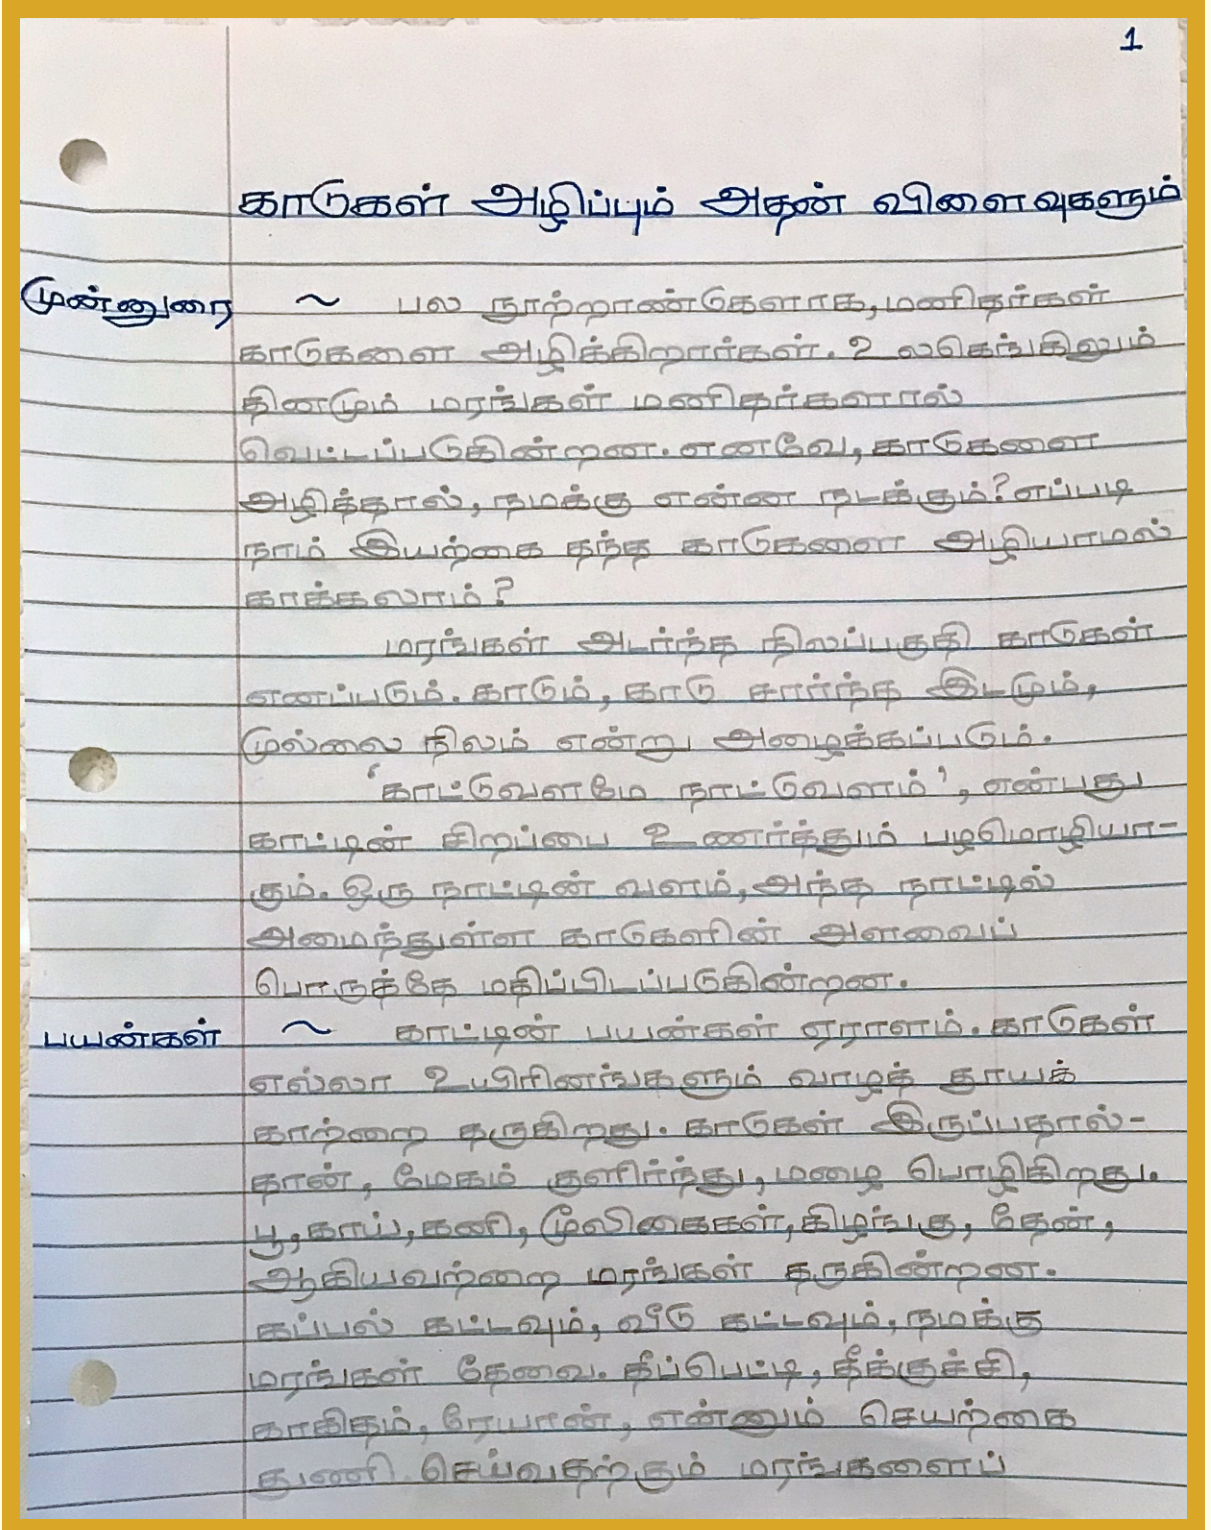 1
காடுகள் அழிப்பும் அதன் விளைவுகளும்
முன்னுரை ~ பல நூற்றாண்டுகளாக, மனிதர்கள்
காடுகளை அழிக்கிறார்கள். உலகெங்கிலும்
தினமும் மரங்கள் மனிதர்களால்
வெட்டப்படுகின்றன. எனவே, காடுகளை
அழித்தால், நமக்கு என்ன நடக்கும்? எப்படி
நாம் இயற்கை தந்த காடுகளை அழியாமல்
காக்கலாம்?
மரங்கள் அடர்ந்த நிலப்பகுதி காடுகள்
எனப்படும். காடும், காடு சார்ந்த இடமும்,
முல்லை நிலம் என்று அழைக்கப்படும்.
'காட்டுவளமே நாட்டுவளம்', என்பது
காட்டின் சிறப்பை உணர்த்தும் பழமொழியா-
கும். ஒரு நாட்டின் வளம், அந்த நாட்டில்
அமைந்துள்ள காடுகளின் அளவைப்
பொருத்தே மதிப்பிடப்படுகின்றன.
பயன்கள் ~ காட்டின் பயன்கள் ஏராளம். காடுகள்
எல்லா உயிரினங்களும் வாழத் தூயக்
காற்றை தருகிறது. காடுகள் இருப்பதால்-
தான், மேகம் குளிர்ந்து, மழை பொழிகிறது.
பூ, காய், கனி, மூலிகைகள், கிழங்கு, தேன்,
ஆகியவற்றை மரங்கள் தருகின்றன.
கப்பல் கட்டவும், வீடு கட்டவும், நமக்கு
மரங்கள் தேவை. தீப்பெட்டி, தீக்குச்சி,
காகிதம், ரேயான், என்னும் செயற்கை
துணி செய்வதற்கும் மரங்களைப்